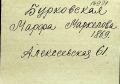 Бурковская
Марфа Маркеловна
1869.
Алексеевская 61